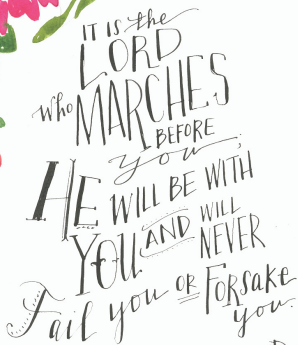 IT IS the
LORD
who MARCHES
BEFORE
you;
HE WILL BE WITH
YOU AND WILL
NEVER
Fail you OR FORSAKE
you.